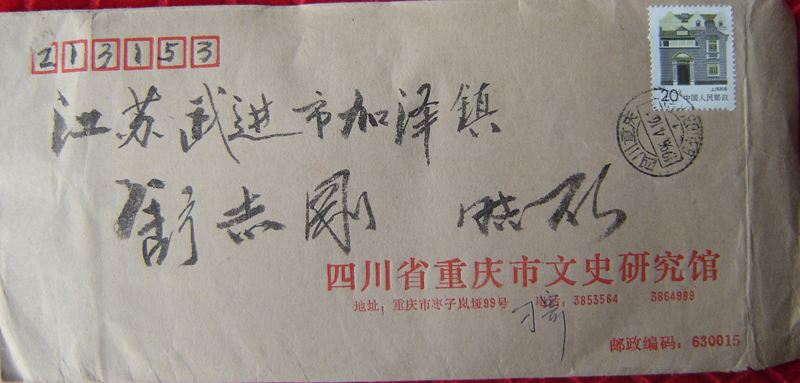 213153
上海民居
20分 中国人民邮政
四川重庆
江苏武进市加泽镇
舒志刚
四川省重庆市文史研究馆
地址：重庆市枣子岚垭99号 电话：3853564 3864989
邮政编码：630015